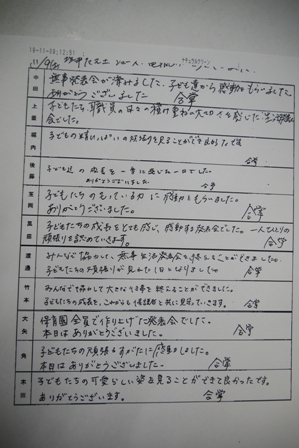 18-11-09;12:51
11/9(金)
中田
無事発表会が済みました。子ども達から感動をもらいました。
ありがとうございました 合掌
上
子どもたち、職員の日々の積み重ねの大切さを感じた生活発表
会でした 合掌
堀内
子どもの精いっぱいの頑張りを見ることができ良かったです
合掌
後藤
子ども達の成長を一番に感じた一日でした
ありがとうございました 合掌
子どもたちのもっている力に感動をもらいました。
ありがとうございました。 合掌
子どもたちの成長をとても感じ、感動する発表会でした。一人ひとりの
頑張りを認めていきます。 合掌
渡邉
みんなで協力して、無事生活発表会を終えることができました。
子どもたちの頑張りが見れた1日となりました 合掌
竹本
みんなで協力して大きな行事を終えることができました。
子どもたちの成長を、これからも保護者と共に見守っていきます。 合掌
大矢
保育園全員で作り上げた発表会でした。
本日はありがとうございました。 合掌
角
子どもたちの頑張るすがたに感動しました。
本日はありがとうございました 合掌
本田
子どもたちの可愛らしい姿を見ることができて良かったです。
ありがとうございます。 合掌